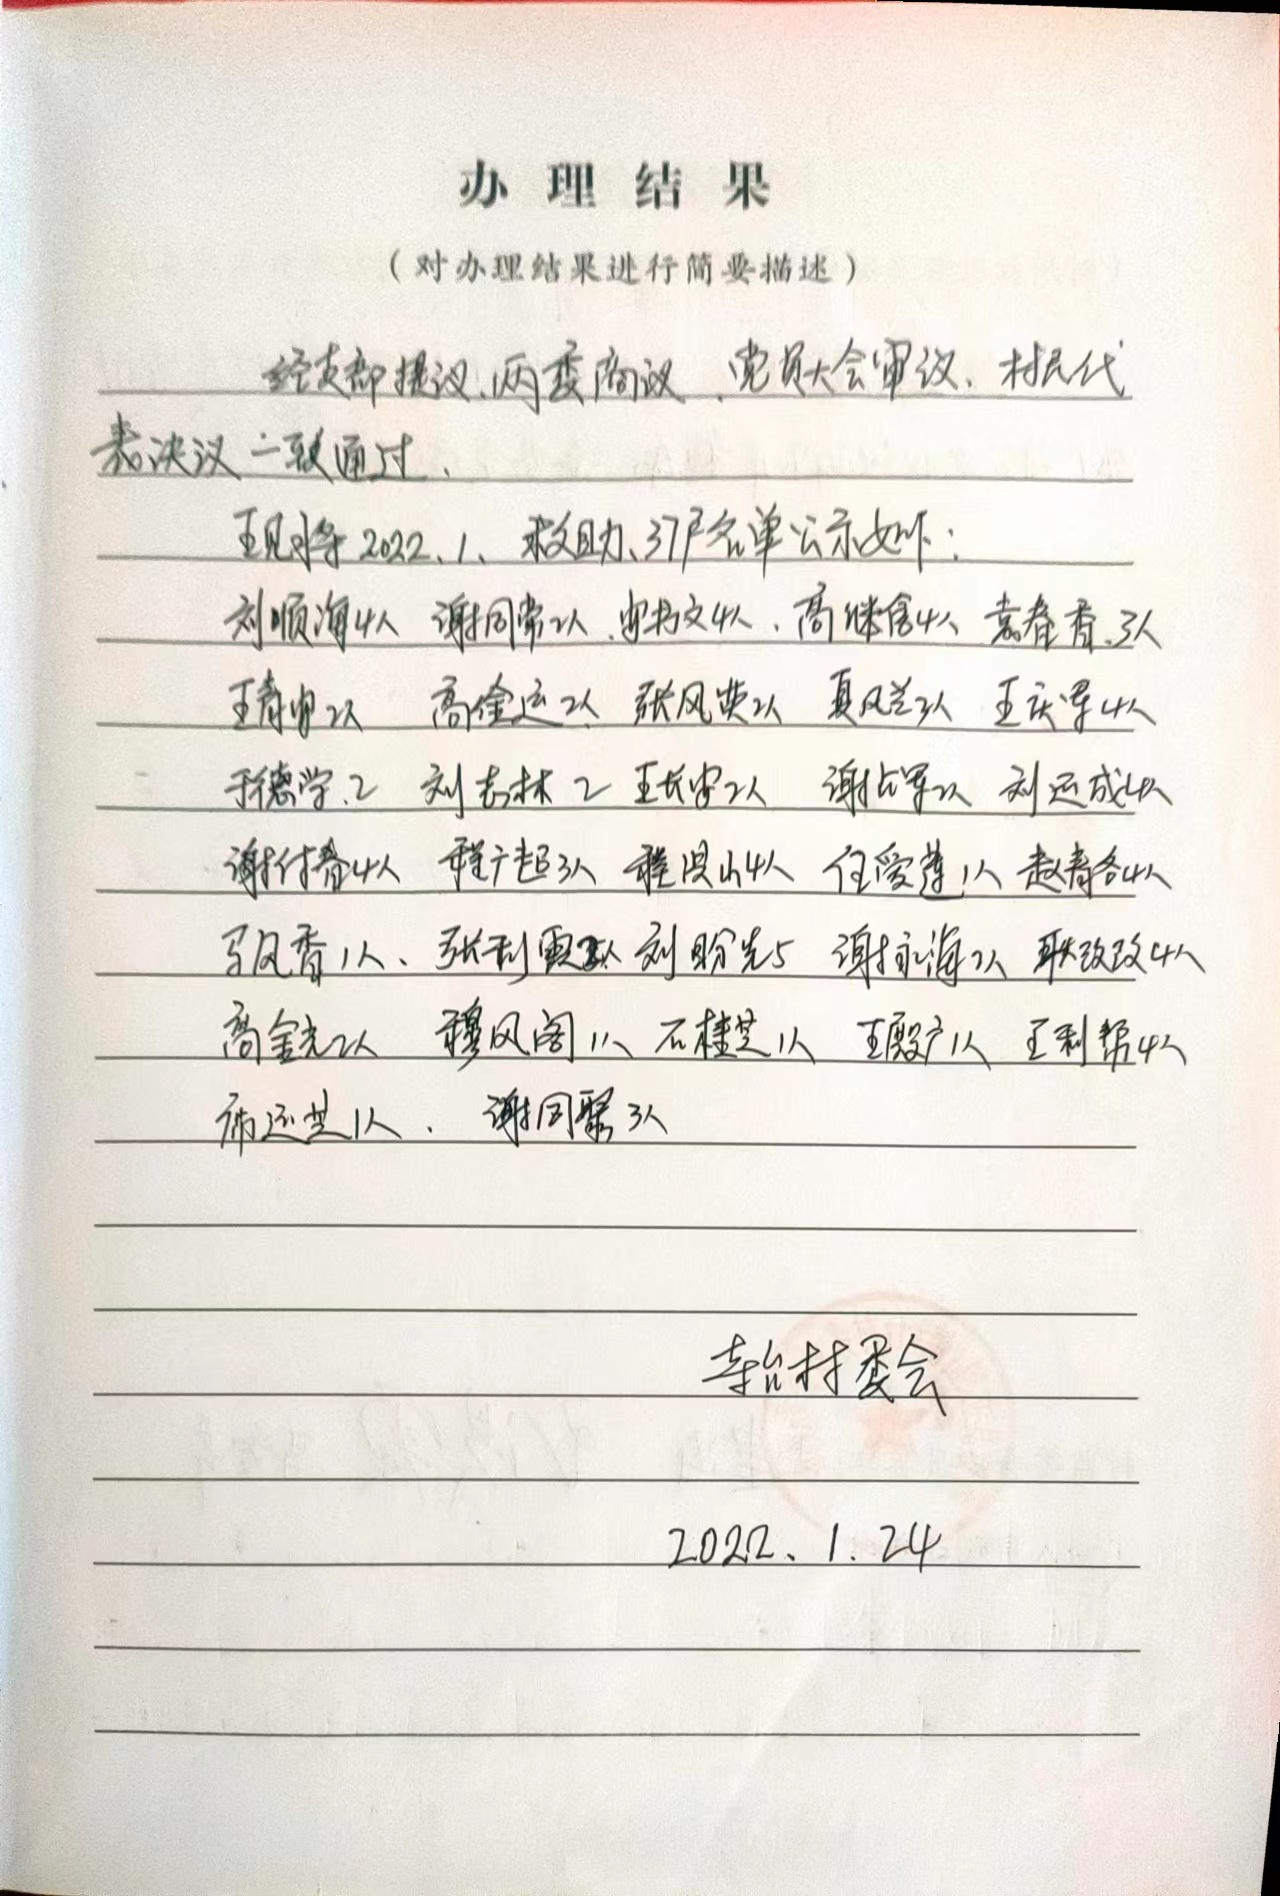 办理结果
（对办理结果进行简要描述）
经支部提议、两委商议、党员大会审议、村民代
表决议一致通过、
现将2022、1、救助、37户名单公示如下：
刘顺海4人 谢同常2人、 4人、高继富4人 袁春香、3人
王青 2人 高金运2人 张风英2人 夏风兰3人 王庆军4人
于德学、2 刘志林2 王长安2人 谢占军2人 刘运成4人
谢付春4人 程广起3人 程洪山4人 任爱莲1人 赵青各4人
马凤香1人、张利霞 人 刘盼先5 谢永海2人 耿改改4人
高金光2人 穆风阁1人 石桂芝1人 王殿广1人 王利帮4人
师运芝1人、 谢同聚3人
村委会
2022、1.24